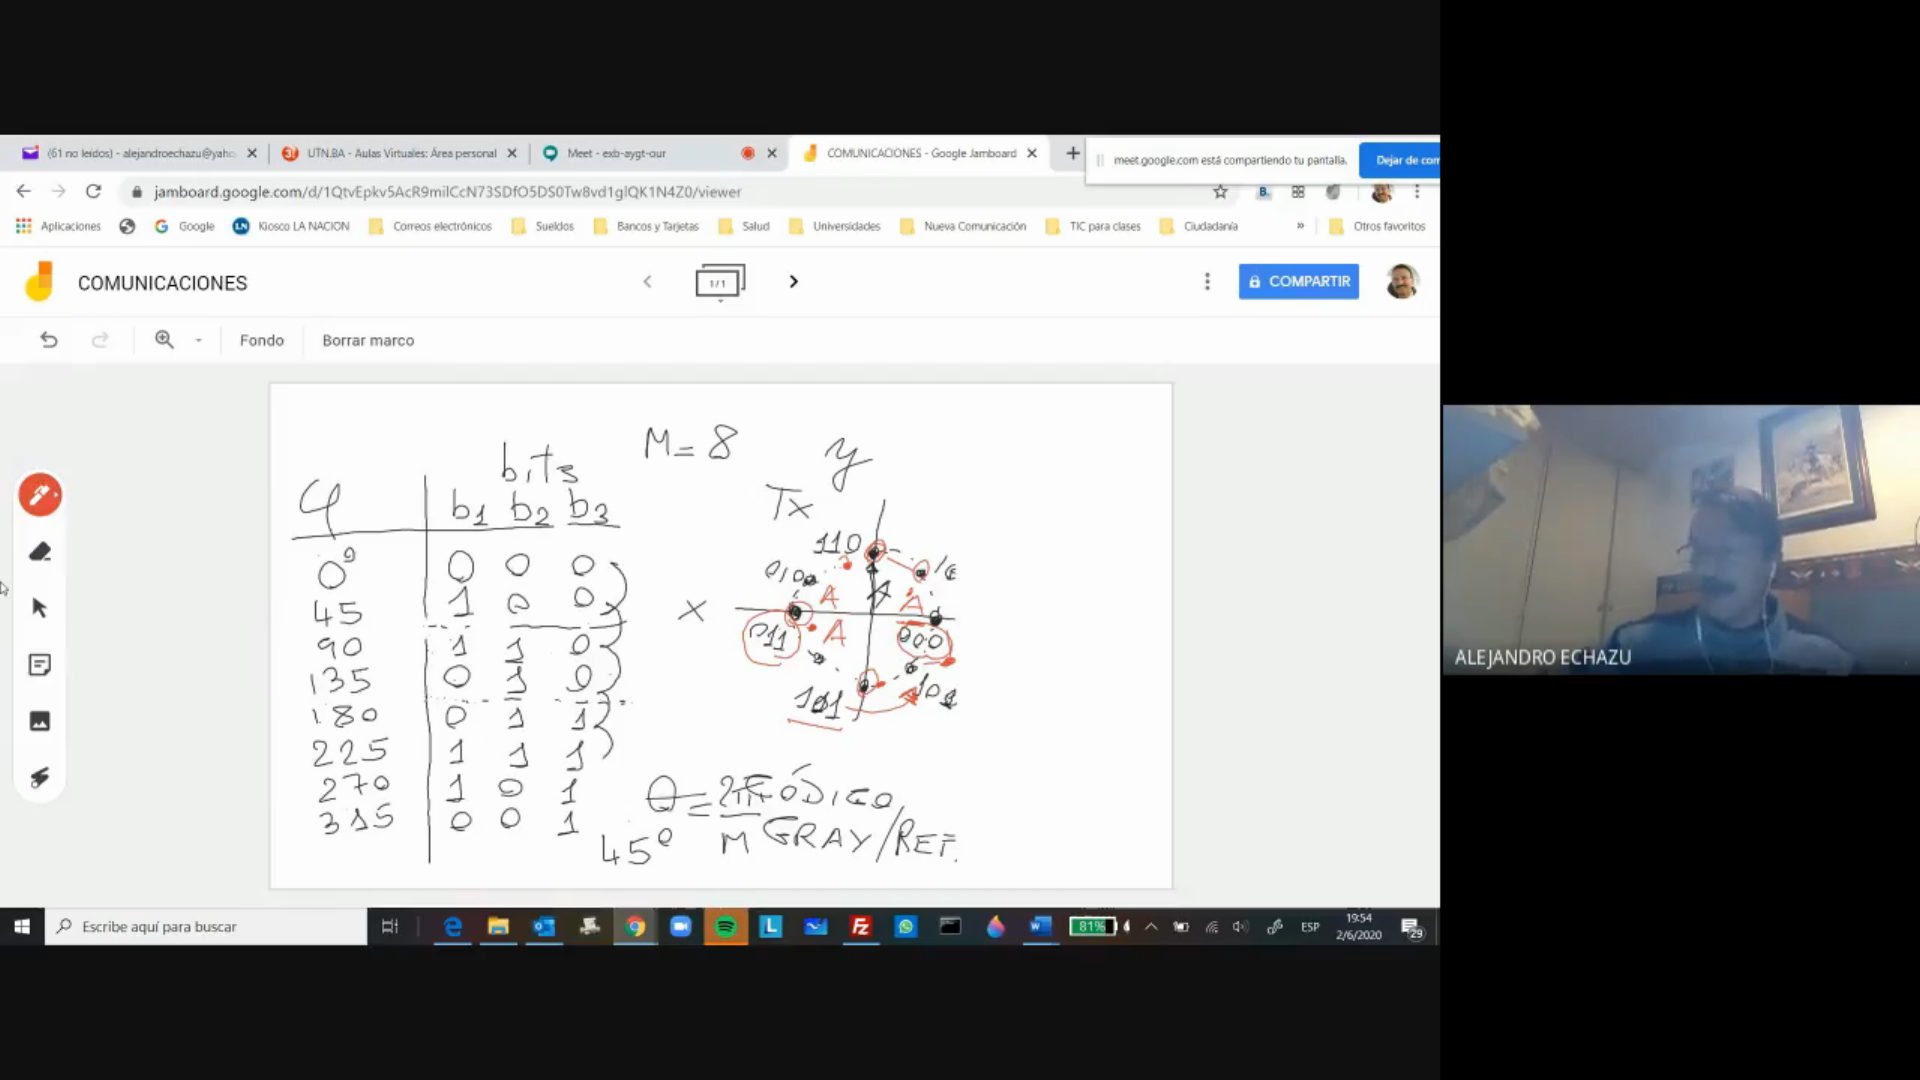 (61 no leídos) - alejandroechazu@yaho
UTN.BA - Aulas Virtuales: Área personal
Meet - exb-aygt-our
COMUNICACIONES - Google Jamboard
meet.google.com está compartiendo tu pantalla.
Dejar de com
jamboard.google.com/d/1QtvEpkv5AcR9milCcN73SDfO5DS0Tw8vd1glQK1N4Z0/viewer
Aplicaciones
Google
Kiosco LA NACION
Correos electrónicos
Sueldos
Bancos y Tarjetas
Salud
Universidades
Nueva Comunicación
TIC para clases
Ciudadanía
»
Otros favoritos
COMUNICACIONES
1/1
COMPARTIR
Fondo
Borrar marco
M = 8
y
bits
φ b1 b2 b3
Tx
0º 0 0 0
45 1 0 0
90 1 1 0
135 0 1 0
180 0 1 1
225 1 1 1
270 1 0 1
315 0 0 1
110
010
x
A
A
A
A
011
000
101
θ = 2π
M
45º
CÓDIGO
GRAY/REF.
ALEJANDRO ECHAZU
Escribe aquí para buscar
81%
ESP
19:54
2/6/2020
29